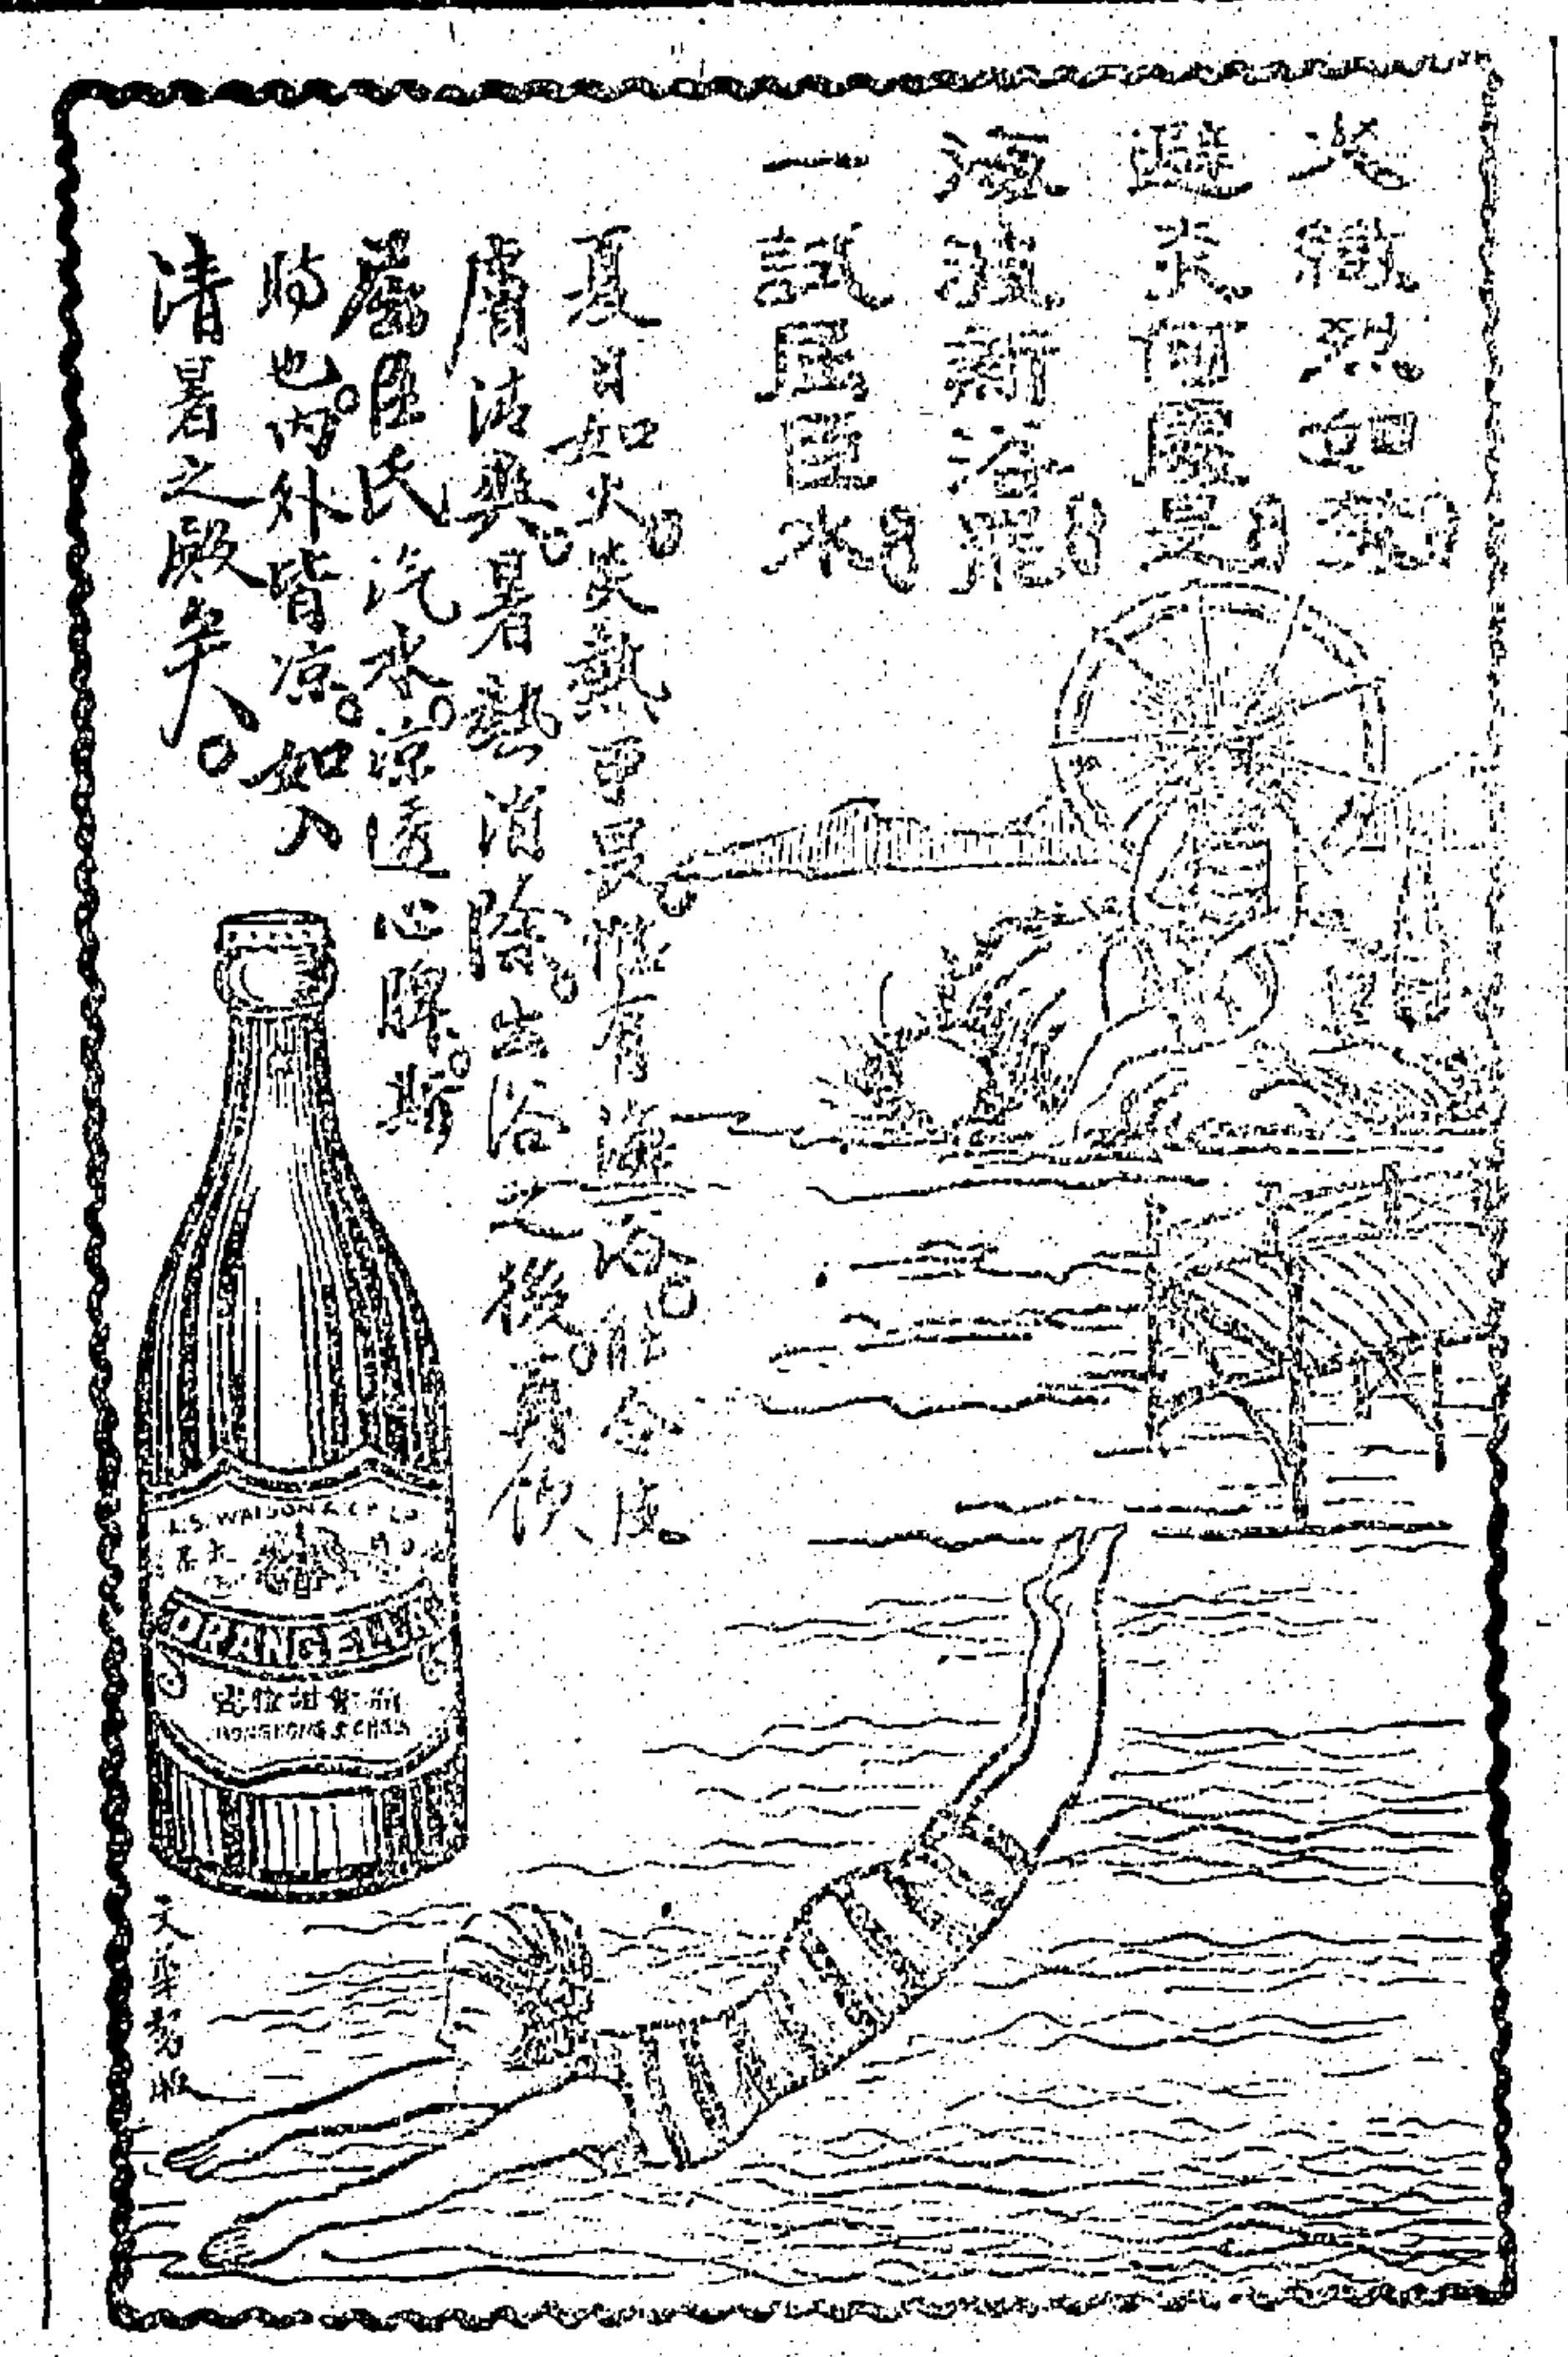 火繖烈如焚
避炎何處是
海濱新浴罷
一試屈臣水
夏日如火。炎熱可畏。惟有海浴。能令皮
膚 爽。暑熱消除。出浴之後。再飲
屈臣氏汽水。凉透心脾。斯
時也。內外皆凉。如入
清暑之殿矣。
A.S. WATSON & CO LD
ORANGELLA
HONGKONG & CHINA